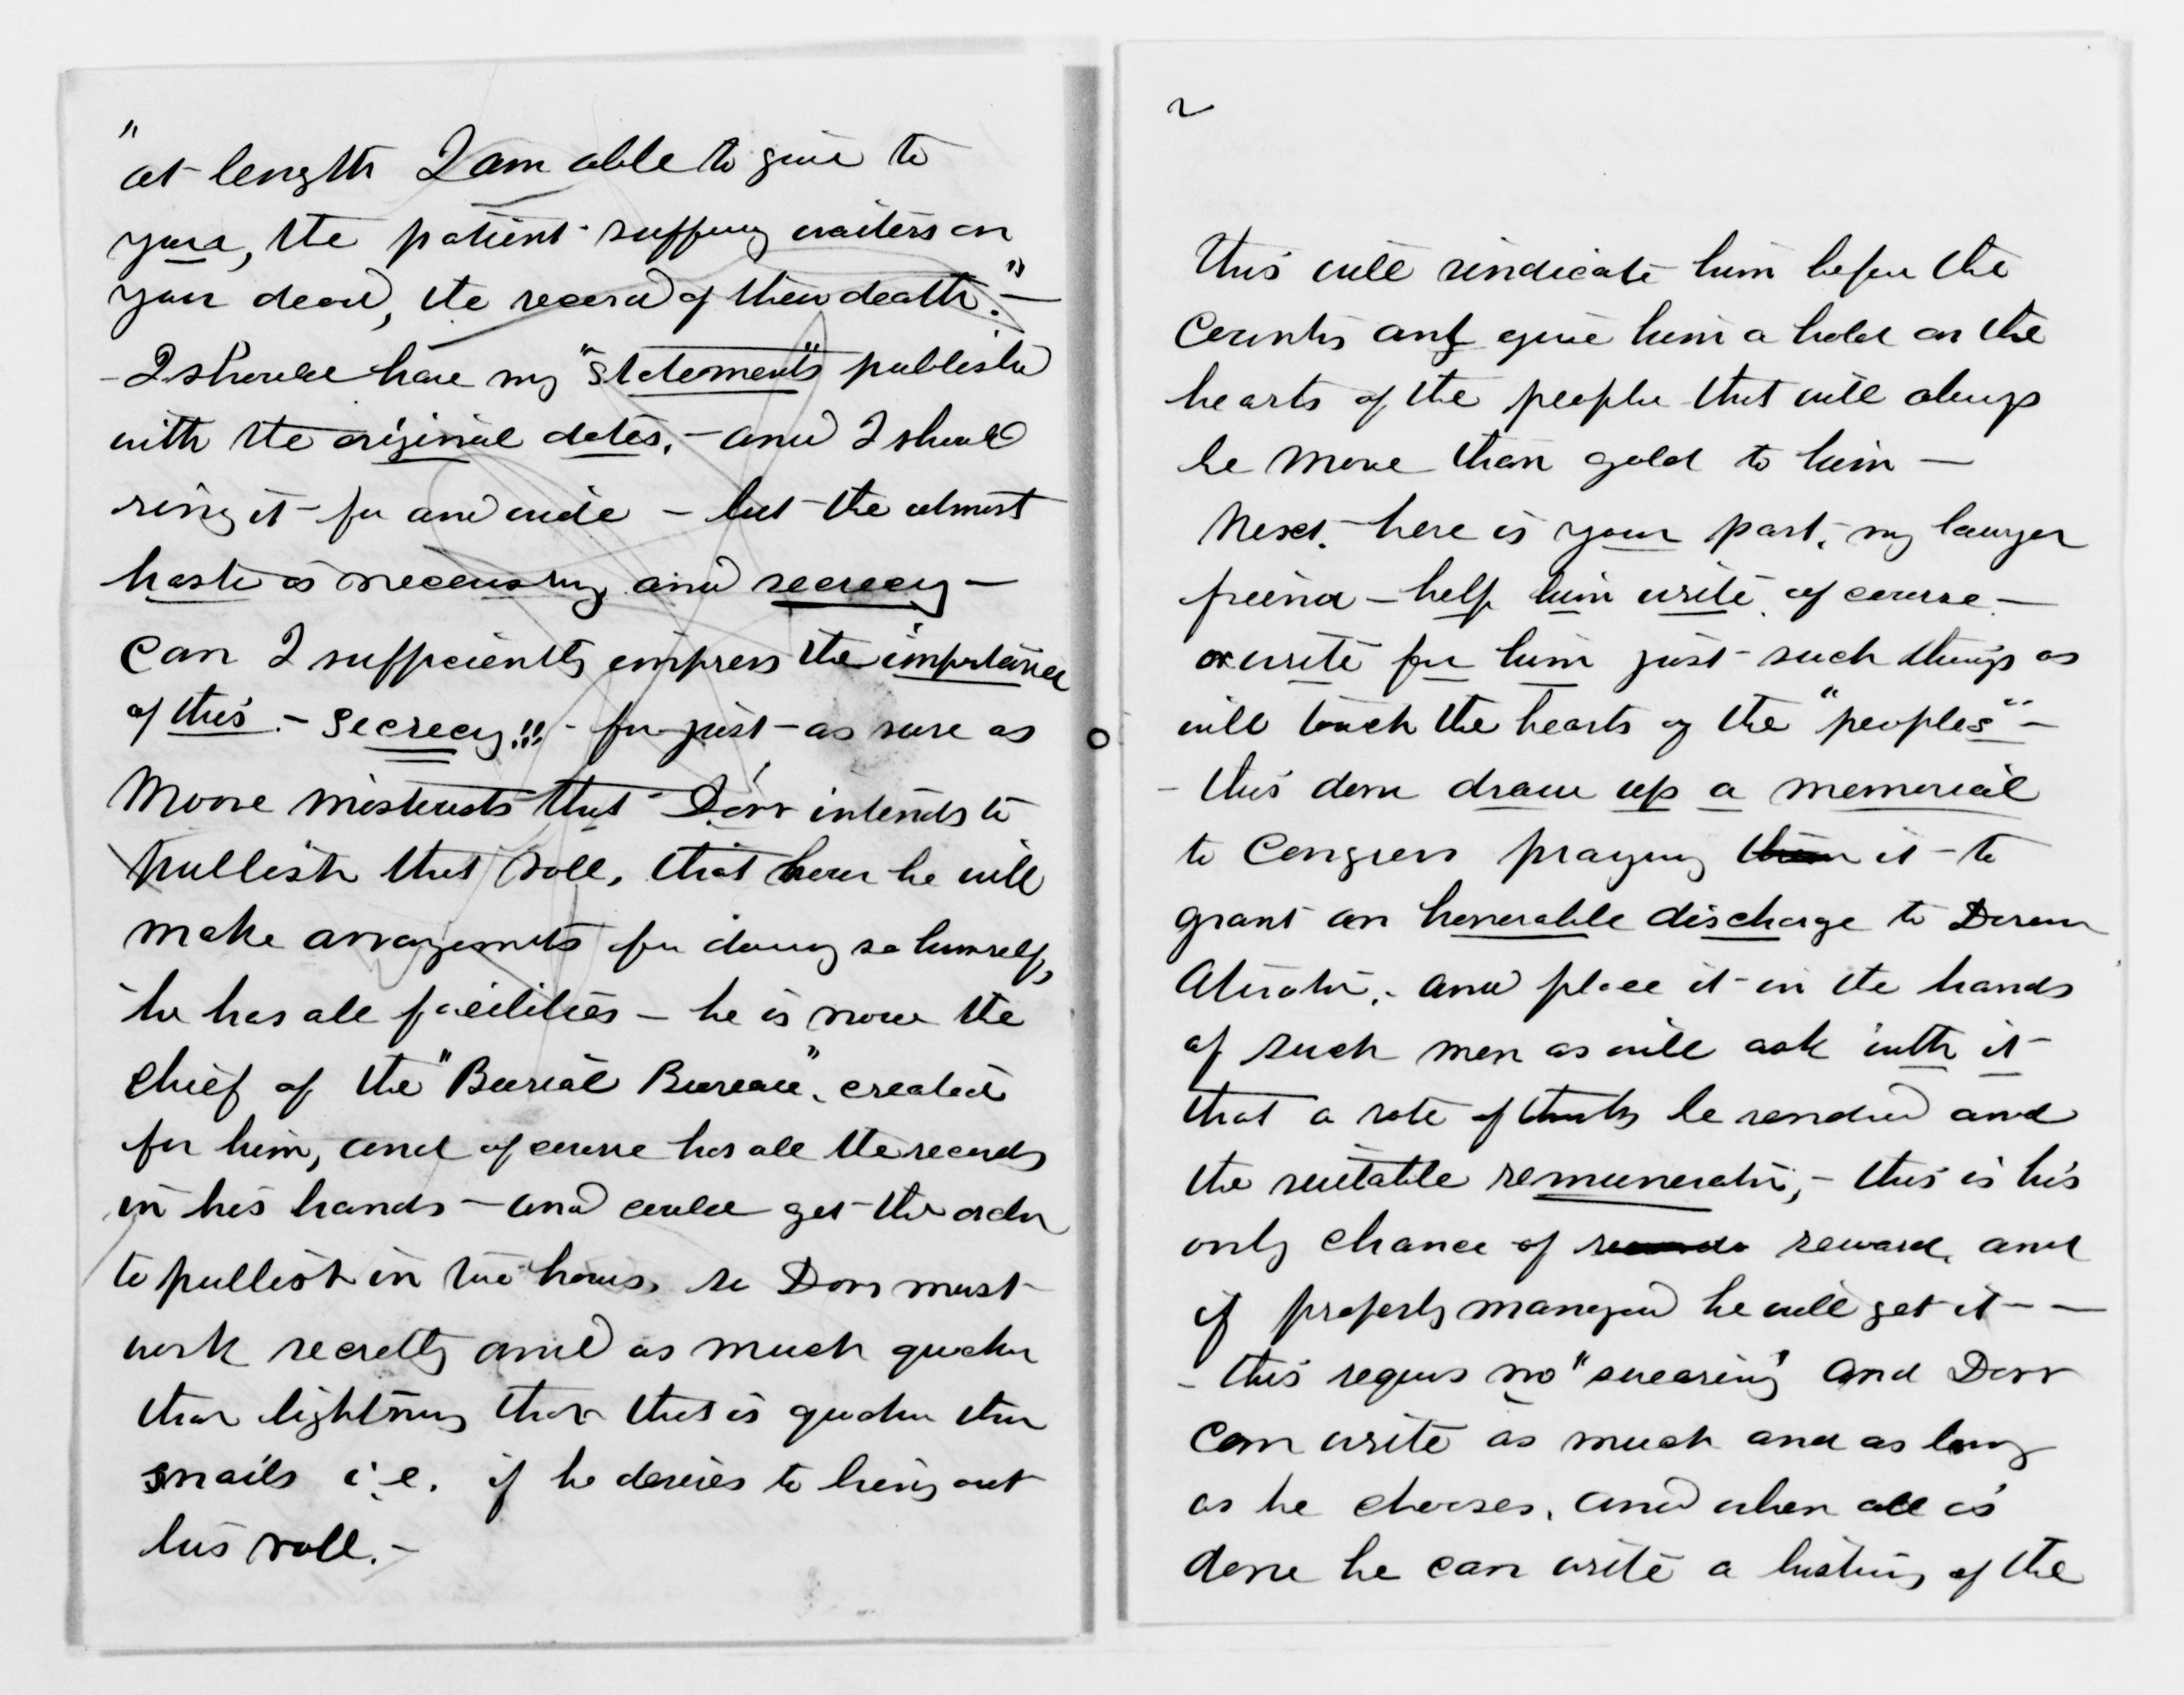 "
at length I am able to give to
you, the patient suffering waiters on
your dead, the record of their death." —
- I should have my "Statements" published
with the original dates. - and I should
ring it far and wide - but the utmost
haste is necessary and secrecy -
Can I sufficiently impress the importance
of this. - Secrecy!!! - for just as sure as
Moore mistrusts that Dorr intends to
publish that roll, that hour he will
make arrangements for doing so himself,
he has all facilities - he is now the
chief of the "Burial Bureau", created
for him, and of course has all the records
in his hands - and could get the order
to publish in two hours, so Dorr must
work secretly and as much quicker
than lightning than that is quicker than
snails i.e. if he desires to bring out
his roll. -
2
This will vindicate him before the
Country and give him a hold on the
hearts of the people that will always
be more than gold to him -
Next. here is your part, my lawyer
friend - help him write of course -
or write for him just such things as
will touch the hearts of the "peoples" -
- this done draw up a memorial
to Congress praying them it - to
grant an honorable discharge to Doren
Atwater, - and place it in the hands
of such men as will ask with it
that a vote of thanks be rendered and
the suitable remuneration, - this is his
only chance of reward, and
if properly managed he will get it - -
- this requires no "swearing" and Dorr
can write as much and as long
as he chooses. and when all is
done he can write a history of the